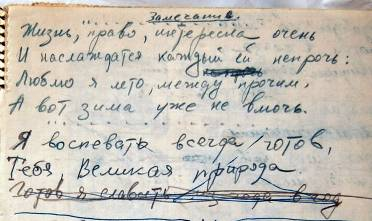 Замечание.
Жизнь, право, интересна очень
И наслаждатся каждый ей непрочь:
Люблю я лето, между прочим,
А вот зима уже не вмочь.
Я воспевать всегда готов,
Тебя, Великая природа
Готов я славить